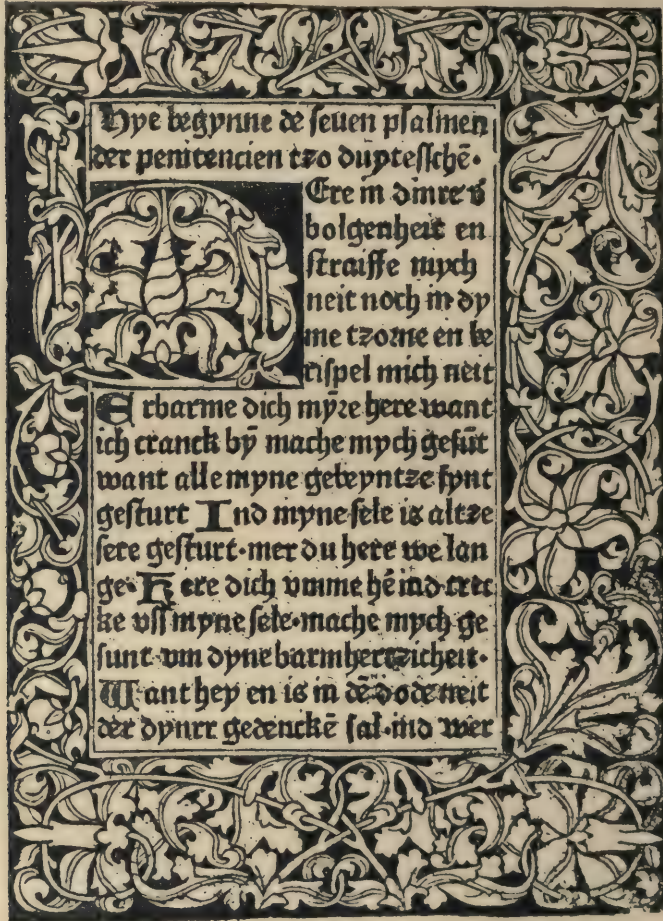 Hye begynne de seuen psalmen
der penitencien tzo duytesschē·
Ere in dinre v̄
bolgenheit en
straiffe mych
neit noch in dy
me tzorne en be
rispel mich neit
Erbarme dich myre here want
ich cranck bȳ mache mych gesūt
want alle myne gebeyntze synt
gesturt Ind myne sele is altze
sere gesturt·mer du here we lan
ge·Kere dich vmme hē ind trec
ke vss myne sele·mache mych ge
sunt vm dyne barmhertzicheit·
Want hey en is in dē dode neit
der dynrr gedenckē sal·ind wer